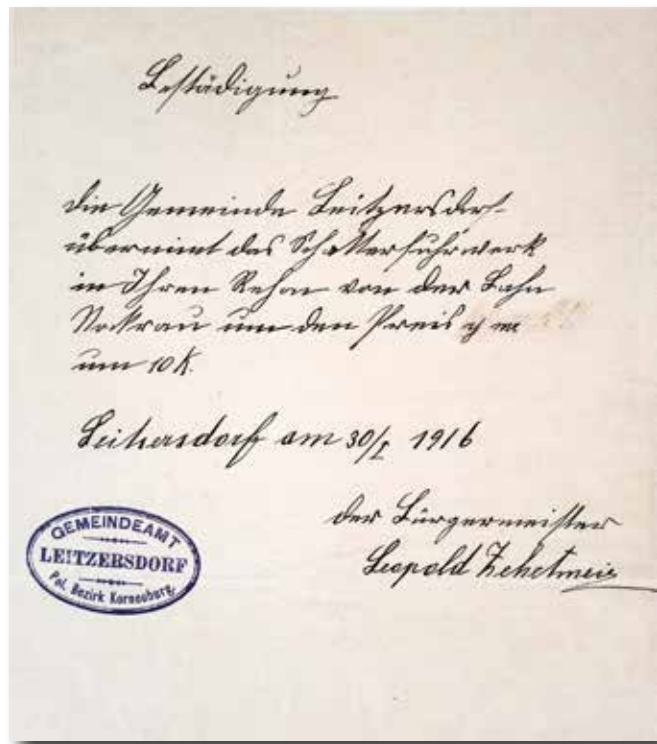 Bestädigung
die Gemeinde Leitzersdorf
übernimt das Schotterfuhrwerk
in Ihren Rayon von der Bahn
Stockrau um den Preis
um 10 K.
Leitzersdorf am 30/I 1916
der Bürgermeister
Leopold Zehetmeier
GEMEINDEAMT
LEITZERSDORF
Pol. Bezirk Korneuburg.